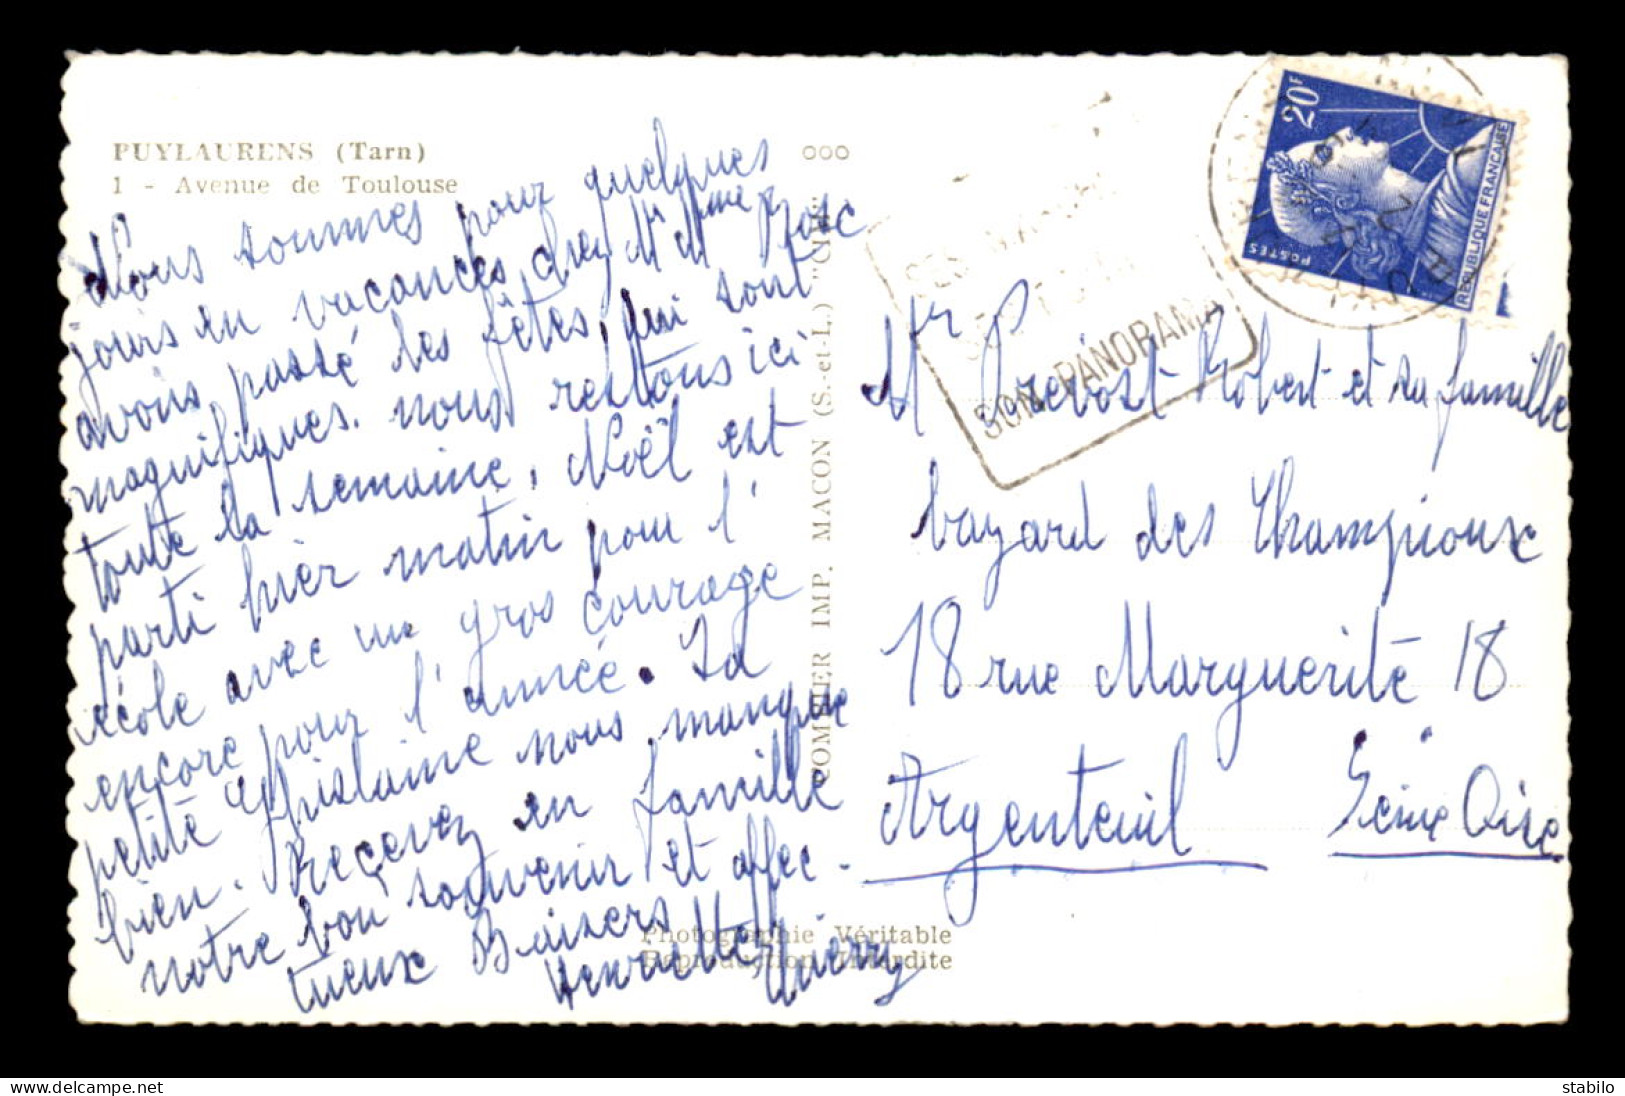 PUYLAURENS (Tarn)
1 - Avenue de Toulouse
Nous sommes pour quelques
jours en vacances chez Mr Mme Bosc
avons passé les fêtes, qui sont
magnifiques. nous restons ici
toute la semaine, Noël est
parti hier matin pour l'
école avec un gros courage
encore pour l'année. La
petite Ghislaine nous manque
bien. Recevez en famille
notre bon souvenir et affec-
tueux Baisers
Henriette
COMBIER IMP. MACON (S.-et-L.) "CIM"
Photographie Véritable
Reproduction Interdite
SON PANORAMA
20F
POSTES
REPUBLIQUE FRANÇAISE
Mr Prevost Robert et sa famille
bayard des Champioux
18 rue Marguerite 18
Argenteuil Seine Oise
delcampe.net
stabilo